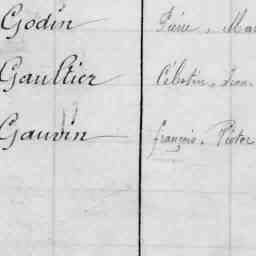 Godin Pierre, Ma
Gaultier Célestin, Jean
Gauvin françois, Victor